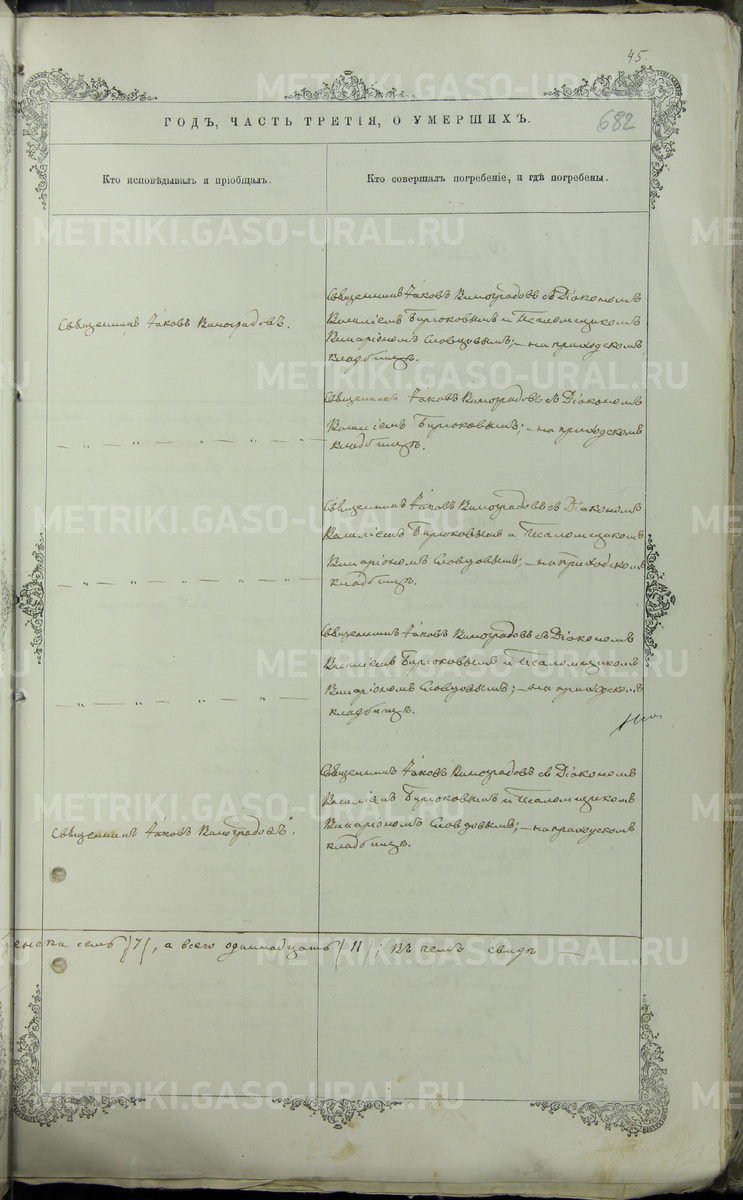 45.
682
ГОДЪ, ЧАСТЬ ТРЕТІЯ, О УМЕРШИХЪ.
Кто исповѣдывалъ и пріобщалъ.
Кто совершалъ погребеніе, и гдѣ погребены.
Священникъ Іаковъ Виноградовъ.
Священникъ Іаковъ Виноградовъ съ Діакономъ
Василіемъ Бирюковымъ и Псаломщикомъ
Виссаріономъ Словцовымъ; – на приходскомъ
кладбищѣ.
— „ — „ — „ — „ —
Священникъ Іаковъ Виноградовъ съ Діакономъ
Василіемъ Бирюковымъ; – на приходскомъ
кладбищѣ.
— „ — „ — „ — „ —
Священникъ Іаковъ Виноградовъ съ Діакономъ
Василіемъ Бирюковымъ и Псаломщикомъ
Виссаріономъ Словцовымъ; – на приходскомъ
кладбищѣ.
— „ — „ — „ — „ —
Священникъ Іаковъ Виноградовъ съ Діакономъ
Василіемъ Бирюковымъ и Псаломщикомъ
Виссаріономъ Словцовымъ; – на приходскомъ
кладбищѣ.
Священникъ Іаковъ Виноградовъ.
Священникъ Іаковъ Виноградовъ съ Діакономъ
Василіемъ Бирюковымъ и Псаломщикомъ
Виссаріономъ Словцовымъ; – на приходскомъ
кладбищѣ.
женска семь /7/, а всего одиннадцать /11/; въ чемъ свидѣ —
METRIKI.GASO-URAL.RU